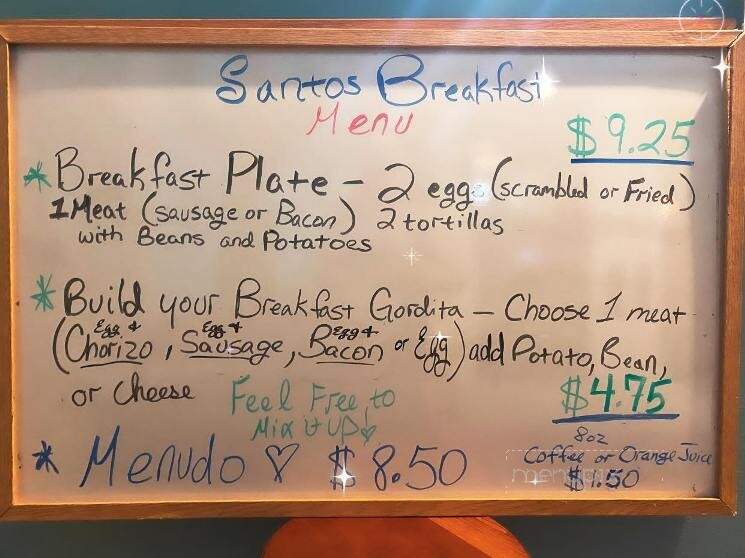 Santos Breakfast
Menu
$9.25
* Breakfast Plate - 2 eggs (scrambled or Fried)
1 Meat (sausage or Bacon) 2 tortillas
with Beans and Potatoes
* Build your Breakfast Gordita - Choose 1 meat
Egg & Egg & Egg &
(Chorizo, Sausage, Bacon or Egg) add Potato, Bean,
or cheese
$4.75
Feel Free to
Mix it UP ♡
* Menudo ♡ $8.50
8oz
Coffee or Orange Juice
$1.50